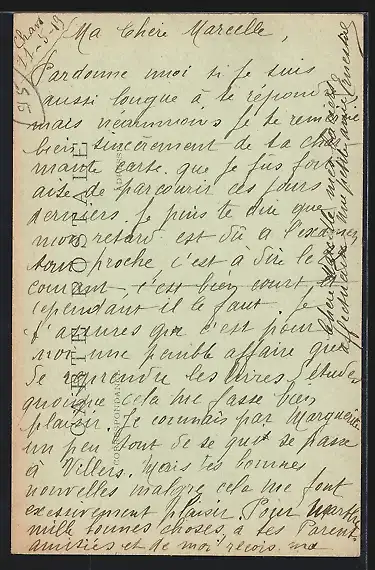 Ma Chère Marcelle,
Pardonne moi si je suis
aussi longue à te répondre
mais néanmoins je te remercie
bien sincèrement de ta char
mante carte que je fus fort
aise de parcourir ces jours
derniers. Je puis te dire que
mon retard est dû à l'examen
tout proche, c'est à dire le
courant, c'est bien court, et
cependant il le faut. Je
t'assures que c'est pour
moi une pénible affaire que
de reprendre les livres d'étude
quoique cela me fasse bien
plaisir. Je connais par Marguerite
un peu tout de ce qui se passe
à Villers. Mais tes bonnes
nouvelles malgré cela me font
excessivement plaisir. Pour Marthe
mille bonnes choses, à tes Parents
amitiés et de moi reçois, ma
chère Marcelle, mes baisers
affectueux. Une petite amie
CARTE POSTALE
CORRESPONDANCE
ADRESSE